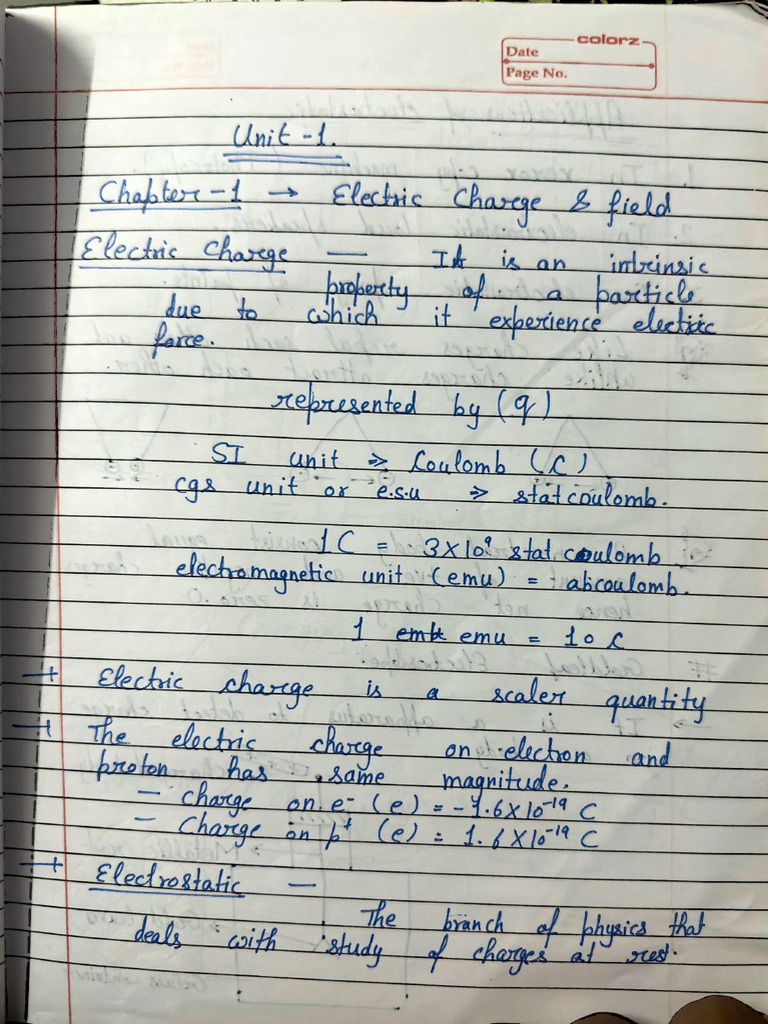 colorz
Date
Page No.
Unit - 1.
Chapter - 1 → Electric Charge & field
Electric Charge — It is an intrinsic
property of a particle
due to which it experience electric
force.
represented by (q)
SI unit ⇒ Coulomb (C)
cgs unit or e.s.u ⇒ statcoulomb.
1 C = 3×10⁹ stat coulomb
electromagnetic unit (emu) = abcoulomb.
1 emu = 10 C
→ Electric charge is a scaler quantity
→ The electric charge on electron and
proton has same magnitude.
– charge on e⁻ (e) = -1.6×10⁻¹⁹ C
– Charge on p⁺ (e) = 1.6×10⁻¹⁹ C
→ Electrostatic —
The branch of physics that
deals with study of charges at rest.